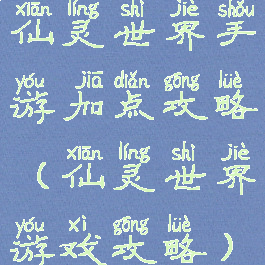 xiān líng shì jiè shǒu
仙灵世界手
yóu jiā diǎn gōng lüè
游加点攻略
xiān líng shì jiè
（仙灵世界
yóu xì gōng lüè
游戏攻略）